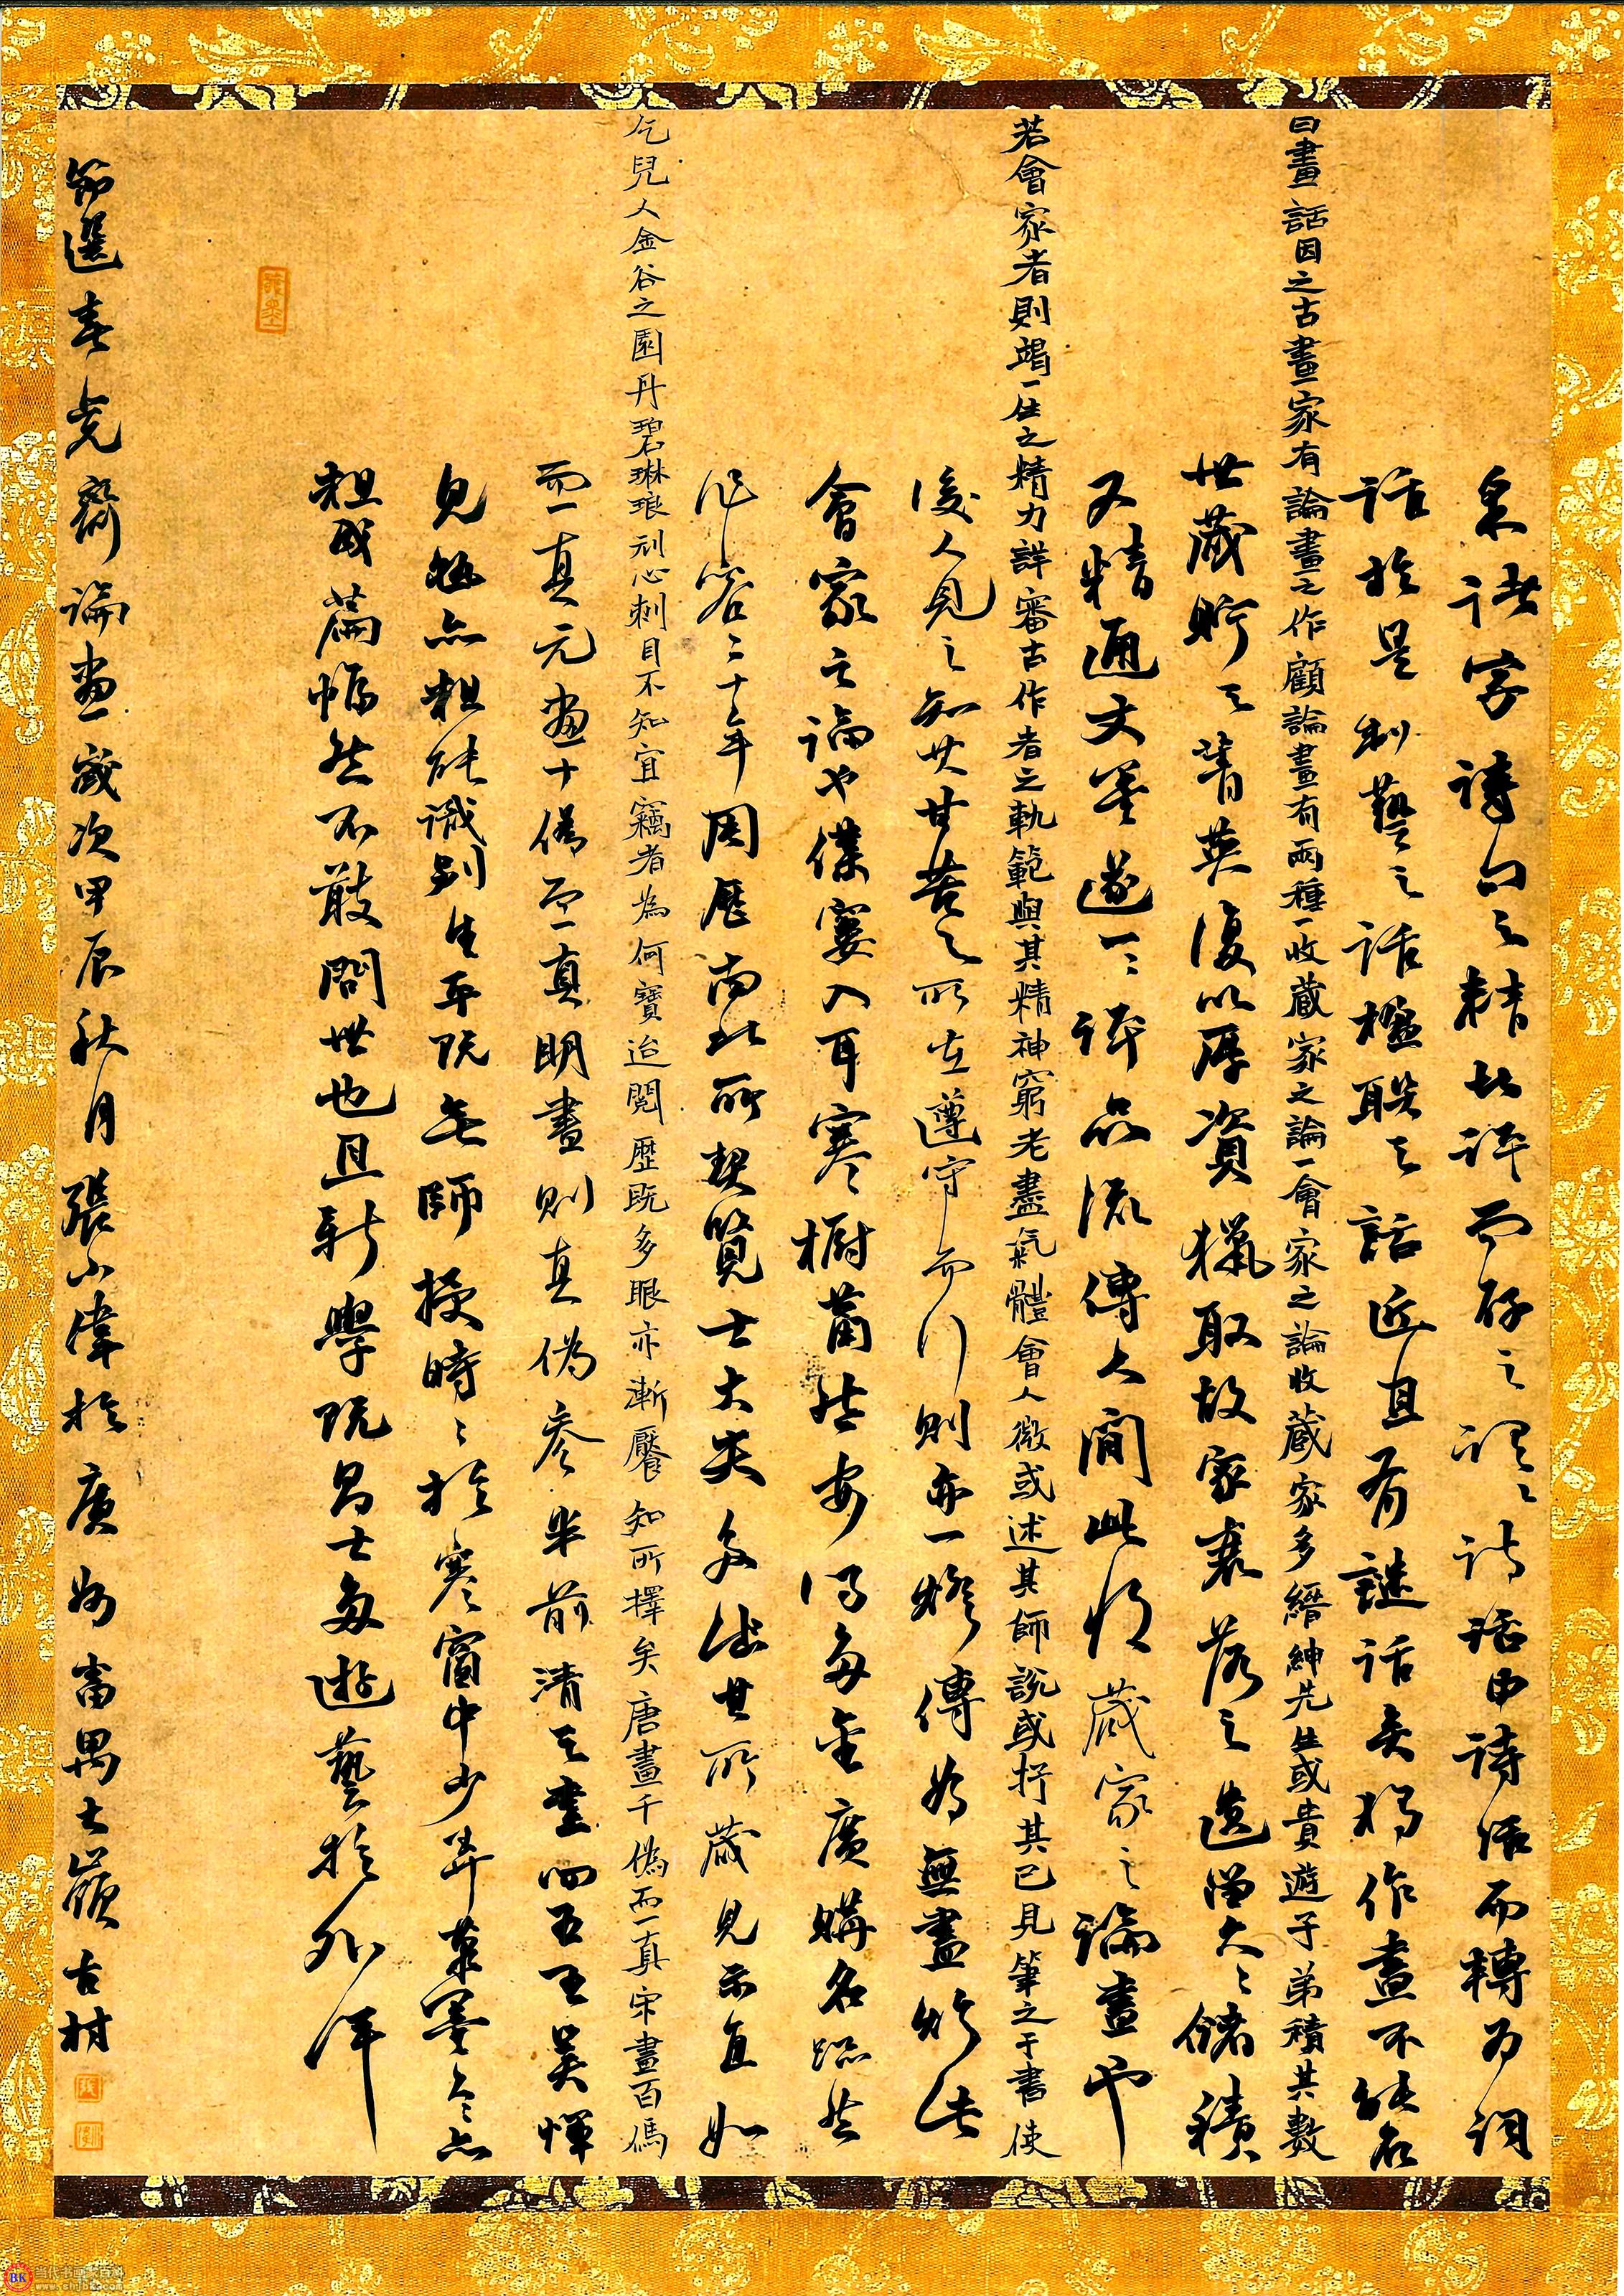 采諸家詩句之精者評而存之謂之詩話由詩話而轉為詞
話於是制藝之話楹聯之話近且有謎話矣獨作畫不能名
曰畫話因之古畫家有論畫之作顧論畫有兩種一收藏家之論一會家之論收藏家多縉紳先生或貴遊子弟積其數
世藏貯之菁英復以厚資獵取故家衰落之遺留大之儲積
又精通文墨遂一一評品流傳人間此收藏家之論畫也
若會家者則竭一生之精力詳審古作者之軌範與其精神窮老盡氣體會入微或述其師說或抒其己見筆之于書使
後人見之知其甘苦之所在遵守而行則亦一燈傳為無盡燈此
會家之論也僕窶人耳寒櫥蕭然安得多金廣購名跡然
作客三十年周歷南北所契賢士大夫多出世所藏見示直如
乞兒入金谷之園丹碧琳琅刓心刺目不知宜竊者為何寶迨閱歷既多眼亦漸饜知所擇矣唐畫千偽而一真宋畫百偽
而一真元畫十偽而一真明畫則真偽參半前清之畫四王吳惲
見極亦粗能識別生平既無師授時時於寒窗中少弄筆墨今亦
粗成篇幅然不敢問世也且新學既昌士多遊藝於外洋
節選春覺齋論畫歲次甲辰秋月張小偉於廣州番禺大嶺古村
當代書畫家百科
www.shjbk.com
BK